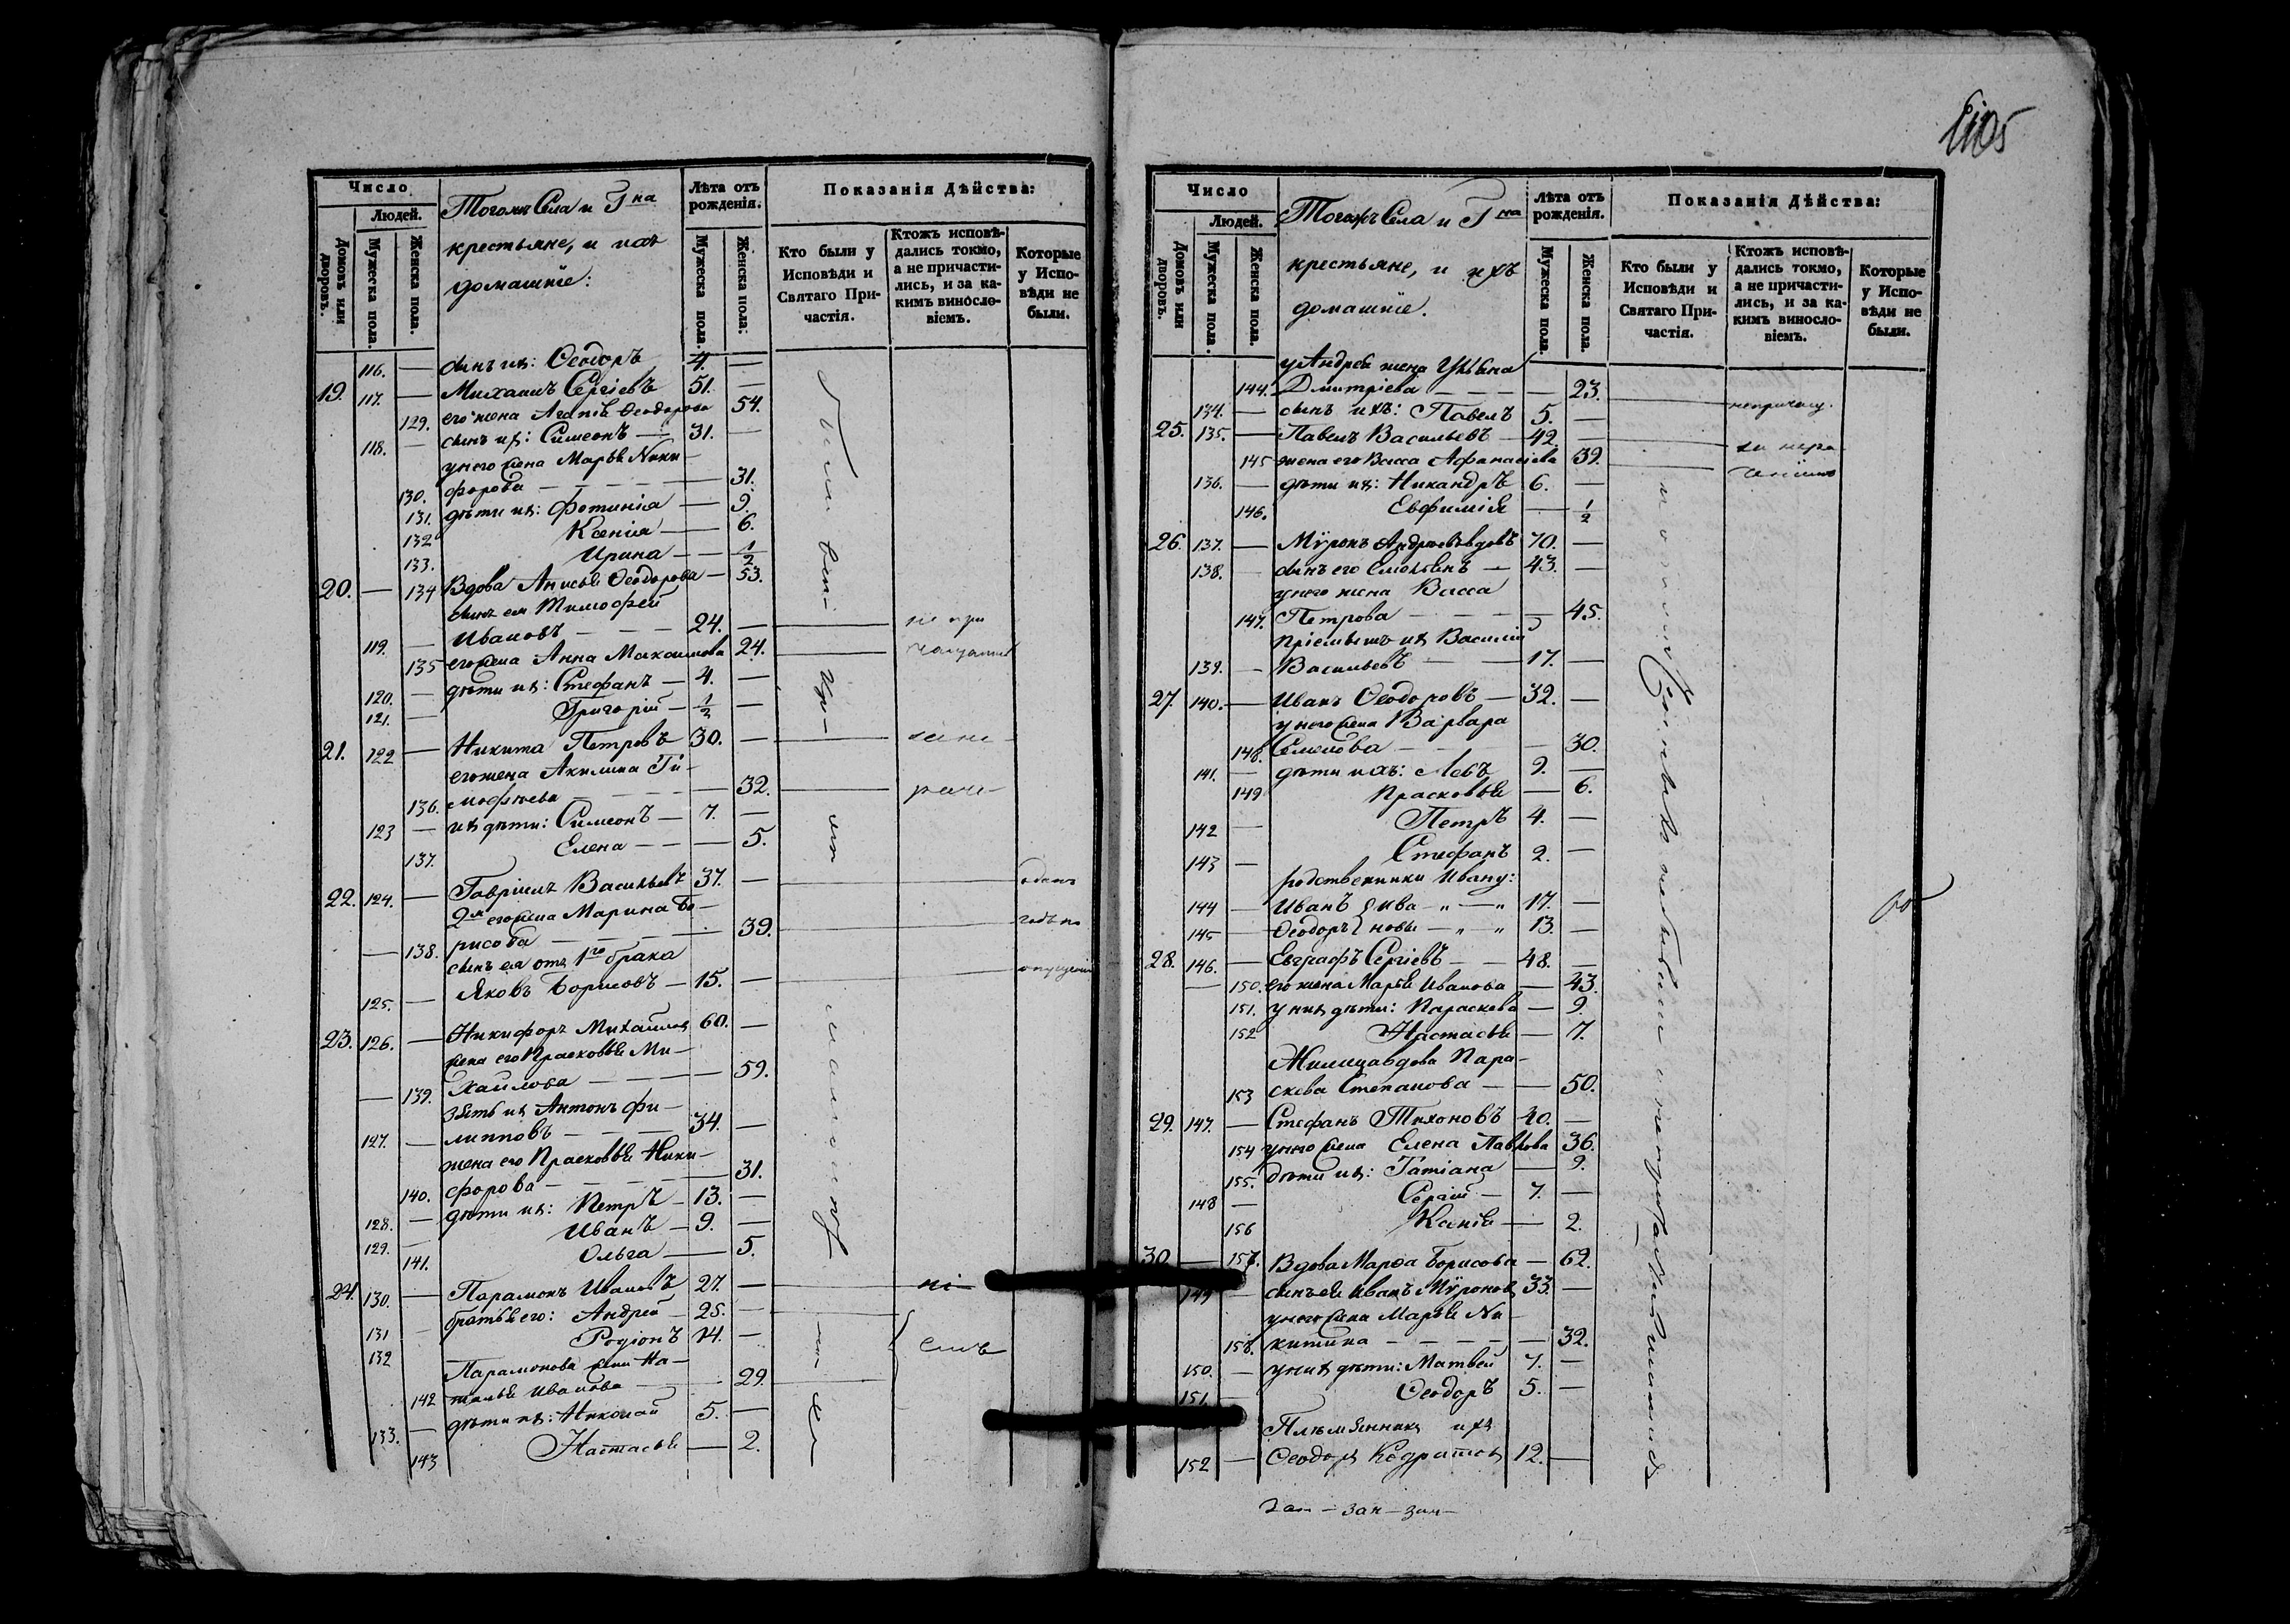 Число
Людей.
Домовъ или дворовъ.
Мужеска пола.
Женска пола.
Тогожъ Села и Г на
крестьяне, и ихъ
домашніе:
Лѣта отъ рожденія.
Мужеска пола.
Женска пола:
Показанія Дѣйства:
Кто были у Исповѣди и Святаго Причастія.
Ктожъ исповѣдались токмо, а не причастились, и за какимъ винословіемъ.
Которые у Исповѣди не были.
116. — сынъ ихъ: Ѳеодоръ 4. —
19. 117. — Михаилъ Сергіевъ 51. —
129. его жена Агапія Ѳеодорова 54.
118. — сынъ ихъ: Симеонъ — 31. —
у него жена Марья Ники-
130. форова — 31.
131. дѣти ихъ: Фотинія — 9.
132 Ксенія — 6.
133. Ирина — 1/2
20. — 134 Вдова Анисья Ѳеодорова — 53.
сынъ ея Тимофей
119. — Ивановъ — 24. — не при
135 его жена Анна Максимова 24.
120. — дѣти ихъ: Стефанъ — 4. —
121. — Григорій — 1/2 —
21. 122 — Никита Петровъ 30. —
его жена Акилина Ти-
136. мофѣева — 32.
123 — ихъ дѣти: Симеонъ — 7. —
137. Елена — 5.
22. 124. — Гавріилъ Васильевъ 37. —
2я его жена Марина Бо-
— 138. рисова — 39.
сынъ ея отъ 1го брака
125. — Яковъ Борисовъ — 15. —
23. 126. — Никифоръ Михайловъ 60. —
жена его Прасковья Ми-
— 139. хайлова — 59.
зять ихъ Антонъ Фи-
127. — липповъ — 34. —
жена его Прасковья Ники-
140. форова — 31.
128. — дѣти ихъ: Петръ — 13. —
129. — Иванъ — 9. —
141. Ольга — 5.
24. 130. — Парамонъ Ивановъ 27. —
131 — братья его: Андрей — 25. —
132 Родіонъ 14. —
Парамонова жена На-
142 талья Иванова — 29.
133. — дѣти ихъ: Николай 5. —
143 Настасья — 2.
Число
Людей.
Домовъ или дворовъ.
Мужеска пола.
Женска пола.
Тогожъ Села и Г на
крестьяне, и ихъ
домашніе.
Лѣта отъ рожденія.
Мужеска пола.
Женска пола.
Показанія Дѣйства:
Кто были у Исповѣди и Святаго Причастія.
Ктожъ исповѣдались токмо, а не причастились, и за какимъ винословіемъ.
Которые у Исповѣди не были.
у Андрея жена Ульяна
144. Дмитріева — 23.
134. — сынъ ихъ: Павелъ 5. —
25. 135. — Павелъ Васильевъ — 42. —
145 жена его Васса Афанасіева 39.
136. — дѣти ихъ: Никандръ 6. —
146. Евфимія — 1/2
26. 137. — Мѵронъ Андреевъ вдовъ 70. —
138. — сынъ его Емельянъ — 43. —
у него жена Васса
147. Петрова — 45.
пріемышъ ихъ Василій
139. — Васильевъ — 17. —
27. 140. — Иванъ Ѳеодоровъ — 32. —
у него жена Варвара
148. Семенова — 30.
141. — дѣти ихъ: Левъ 9. —
149 Прасковья — 6.
142 — Петръ 4. —
143 — Стефанъ 2. —
родственники Ивану:
144 — Иванъ } Ива — „ — „ 17. —
145 — Ѳеодоръ } новы — „ — „ 13. —
28. 146. — Евграфъ Сергіевъ — 48. —
— 150. его жена Марья Иванова — 43.
151. у нихъ дѣти: Параскева — 9.
152 Настасья — 7.
Жилица вдова Пара-
153 скева Степанова — 50.
29. 147. — Стефанъ Тихоновъ 40. —
154 у него жена Елена Павлова 36.
155. дѣти ихъ: Татіана — 9.
148 — Сергій — 7. —
156 Ксенія — 2.
30. — 157. Вдова Марѳа Борисова — 62.
149 — сынъ ея Иванъ Мѵроновъ 33. —
у него жена Марья Ни-
158. китина — 32.
150. — у нихъ дѣти: Матвей 7. —
151. Ѳеодоръ 5. —
Племянникъ ихъ
152 — Ѳеодоръ Кодратовъ 12. —
зан — зан — зан —